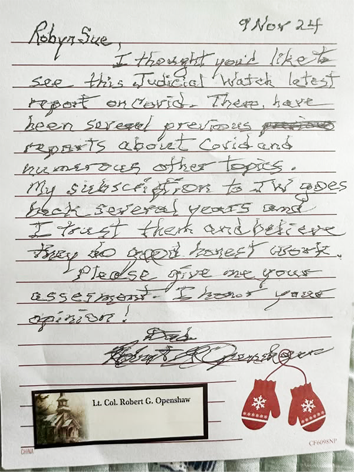 9 Nov 24
Robyn Sue,
I thought you'd like to
see this Judicial Watch latest
report on covid. There have
been several previous previous
reports about Covid and
numerous other topics.
My subscription to JW goes
back several years and
I trust them and believe
they do good honest work.
Please give me your
assesment. I honor your
opinion!
Dad
Robert G Openshaw
Lt. Col. Robert G. Openshaw
CHINA